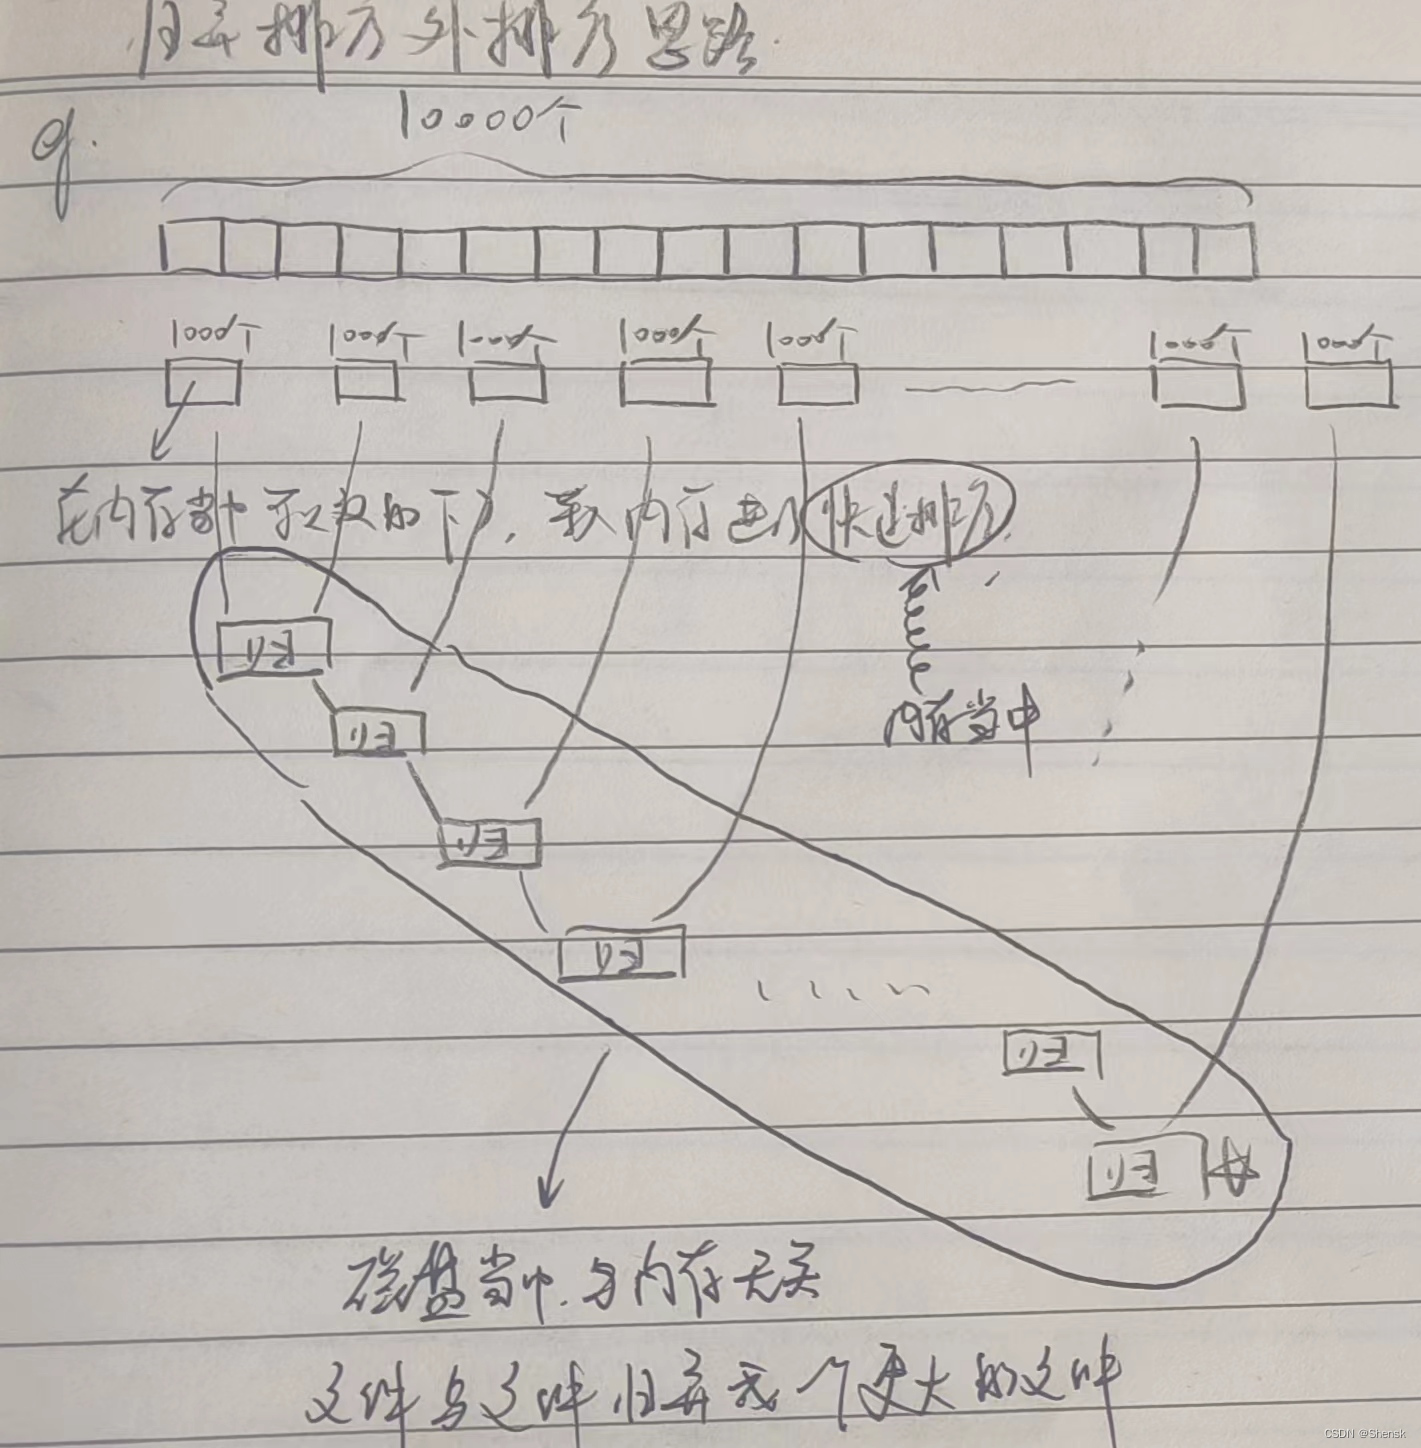 归并排序外排序思路.
eg.
10000个
1000个 1000个 1000个 1000个 1000个 1000个 1000个
在内存当中 可以放的下, 放入内存进行快速排序.
归
归
内存当中
归
归
归
归
磁盘当中.与内存无关
文件与文件归并成一个更大的文件
CSDN @Shensk